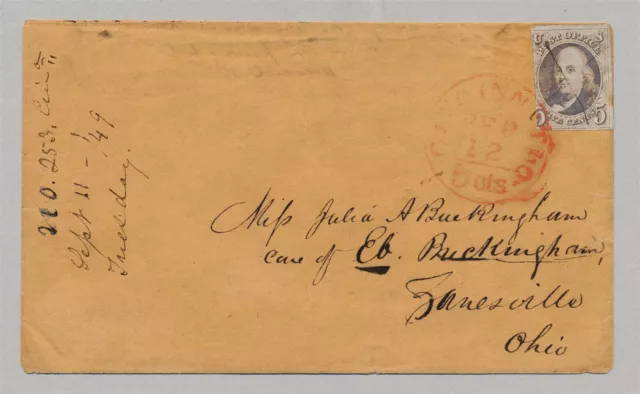 No. 253. Cin.
Sept 11 - 1/49
Tuesday.
POST OFFICE
FIVE CENTS
5 5
CINCINNATI O.
SEP
12
5 cts
Miss Julia A Buckingham
care of Eb. Buckingham,
Zanesville
Ohio